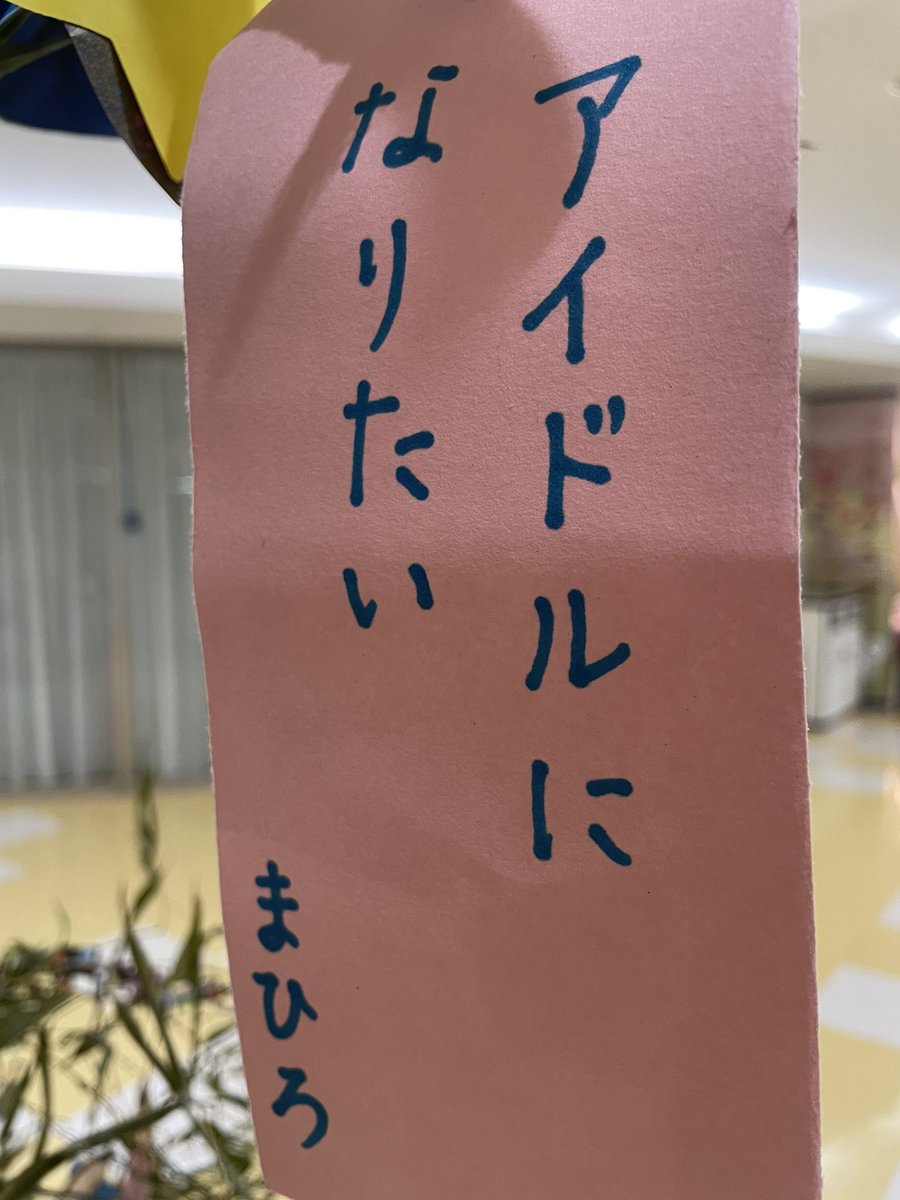 アイドルに
なりたい
まひろ